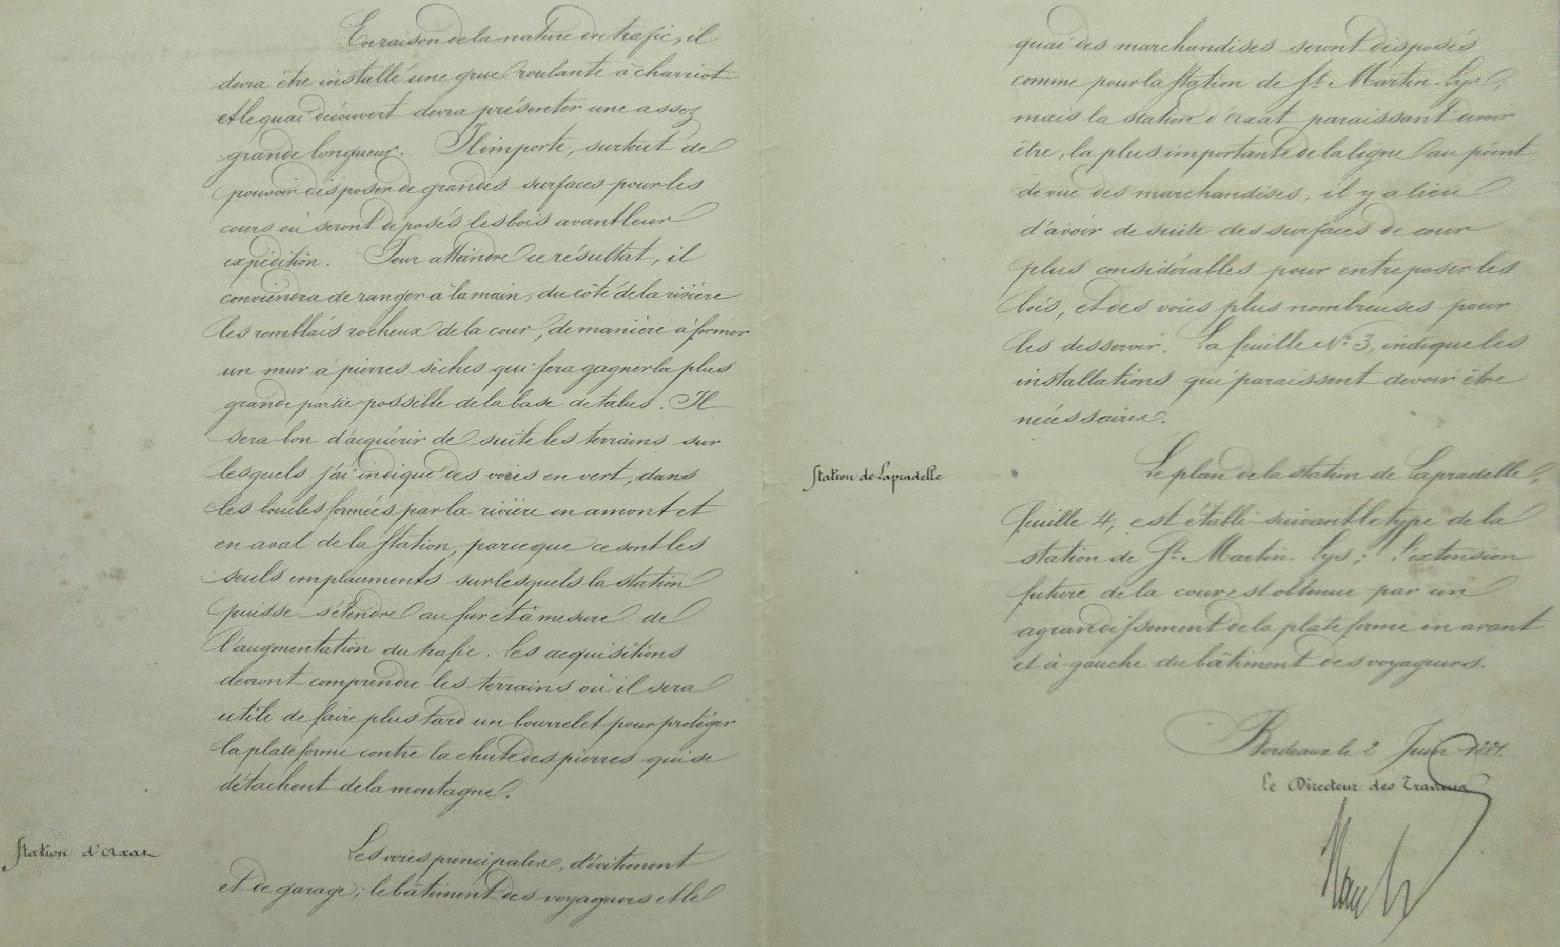 En raison de la nature du trafic, il
devra être installé une grue roulante à charriot
et le quai découvert devra présenter une assez
grande longueur. Il importe, surtout de
pouvoir disposer de grandes surfaces pour les
cours où seront déposés les bois avant leur
expédition. Pour atteindre ce résultat, il
conviendra de ranger à la main, du côté de la rivière
les remblais rocheux de la cour, de manière à former
un mur à pierres sèches qui fera gagner la plus
grande partie possible de la base de talus. Il
sera bon d'acquérir de suite les terrains sur
lesquels j'ai indiqué des voies en vert, dans
les boucles formées par la rivière en amont et
en aval de la station, parceque ce sont les
seuls emplacements sur lesquels la station
puisse s'étendre au fur et à mesure de
l'augmentation du trafic. Les acquisitions
devront comprendre les terrains où il sera
utile de faire plus tard un bourrelet pour protéger
la plateforme contre la chute des pierres qui se
détachent de la montagne.
Station d'Axat
Les voies principales, d'évitement
et de garage; le bâtiment des voyageurs et le
quai des marchandises seront disposés
comme pour la station de St. Martin-Lys;
mais la station d'Axat paraissant devoir
être, la plus importante de la ligne au point
de vue des marchandises, il y a lieu
d'avoir de suite des surfaces de cour
plus considérables pour entreposer les
bois, et des voies plus nombreuses pour
les desservir. La feuille No. 3, indique les
installations qui paraissent devoir être
nécessaires.
Station de Lapradelle
Le plan de la station de Lapradelle,
feuille 4, est établi suivant le type de la
station de St. Martin-Lys; l'extension
future de la cour est obtenue par un
agrandissement de la plateforme en avant
et à gauche du bâtiment des voyageurs.
Bordeaux le 2 Juin 1881.
Le Directeur des Travaux